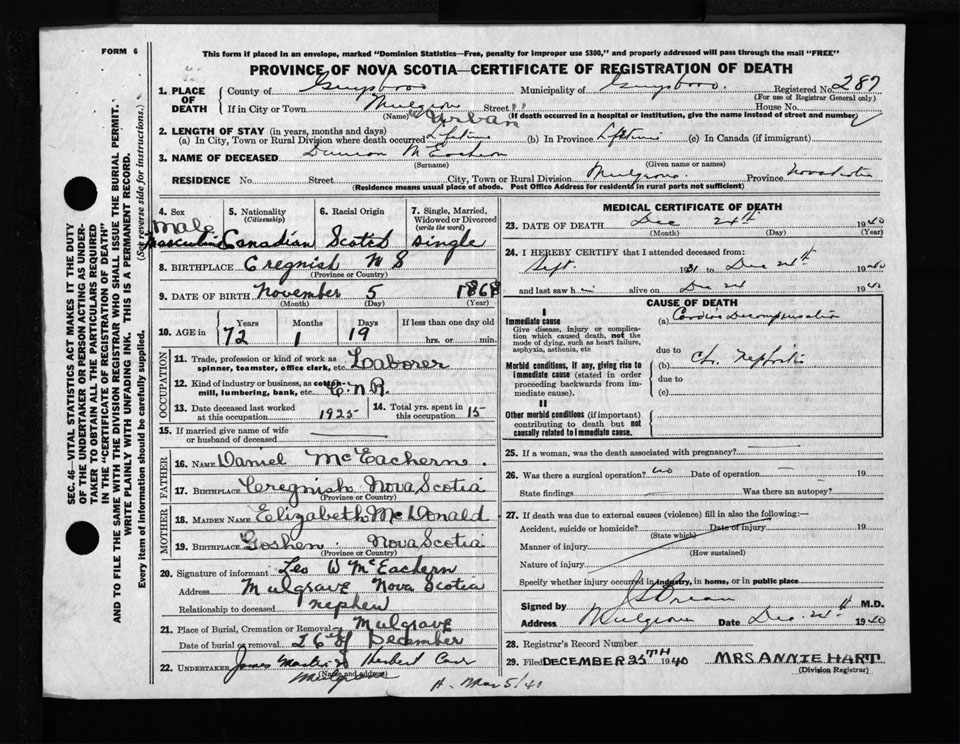 FORM 6
This form if placed in an envelope, marked "Dominion Statistics—Free, penalty for improper use $300," and properly addressed will pass through the mail "FREE"
PROVINCE OF NOVA SCOTIA—CERTIFICATE OF REGISTRATION OF DEATH
1. PLACE OF DEATH
County of Guysboro Municipality of Guysboro. Registered No. 287
(For use of Registrar General only)
If in City or Town Mulgrave Street House No.
(Name) Urban (If death occurred in a hospital or institution, give the name instead of street and number)
2. LENGTH OF STAY (in years, months and days)
(a) In City, Town or Rural Division where death occurred Lifetime (b) In Province Lifetime (c) In Canada (if immigrant)
3. NAME OF DECEASED Duncan McEachern
(Surname) (Given name or names)
RESIDENCE No. Street City, Town or Rural Division Mulgrave Province Nova Scotia
(Residence means usual place of abode. Post Office Address for residents in rural parts not sufficient)
4. Sex 5. Nationality (Citizenship) 6. Racial Origin 7. Single, Married, Widowed or Divorced (write the word)
Male
Masculine Canadian Scotch single
8. BIRTHPLACE Cregnish N S
(Province or Country)
9. DATE OF BIRTH November 5 1868
(Month) (Day) (Year)
10. AGE in Years Months Days If less than one day old
72 1 19 hrs. or min.
OCCUPATION
11. Trade, profession or kind of work as spinner, teamster, office clerk, etc. Loaborer
12. Kind of industry or business, as cotton mill, lumbering, bank, etc. C.N.R.
13. Date deceased last worked at this occupation 1925 14. Total yrs. spent in this occupation 15
15. If married give name of wife or husband of deceased
FATHER
16. NAME Daniel McEachern.
17. BIRTHPLACE Ceregnish Nova Scotia
(Province or Country)
MOTHER
18. MAIDEN NAME Elizabeth McDonald
19. BIRTHPLACE Goshen. Nova Scotia
(Province or Country)
20. Signature of informant Leo W McEachern
Address Mulgrave Nova Scotia
Relationship to deceased nephew
21. Place of Burial, Cremation or Removal Mulgrave
Date of burial or removal 26th December
22. UNDERTAKER Herbert
Mulgrave
(Name and address)
MEDICAL CERTIFICATE OF DEATH
23. DATE OF DEATH Dec 24th 1940
(Month) (Day) (Year)
24. I HEREBY CERTIFY that I attended deceased from:
Sept. 1931 to Dec 24th 1940
and last saw him alive on Dec 24 1940
CAUSE OF DEATH
I
Immediate cause
Give disease, injury or complication which caused death, not the mode of dying, such as heart failure, asphyxia, asthenia, etc
(a) Cardiac Decompensation
due to
Morbid conditions, if any, giving rise to immediate cause (stated in order proceeding backwards from immediate cause).
(b) Ch. nephritis
due to
(c)
II
Other morbid conditions (if important) contributing to death but not causally related to immediate cause.
25. If a woman, was the death associated with pregnancy?
26. Was there a surgical operation? no Date of operation 19
State findings Was there an autopsy?
27. If death was due to external causes (violence) fill in also the following:—
Accident, suicide or homicide? Date of injury 19
(State which)
Manner of injury
(How sustained)
Nature of injury
Specify whether injury occurred in industry, in home, or in public place
Signed by M.D.
Address Mulgrave Date Dec. 24th 1940
28. Registrar's Record Number
29. Filed DECEMBER 25TH 1940 MRS ANNIE HART
(Division Registrar)
SEC. 46—VITAL STATISTICS ACT MAKES IT THE DUTY
OF THE UNDERTAKER OR PERSON ACTING AS UNDERTAKER
TO OBTAIN ALL THE PARTICULARS REQUIRED
IN THE "CERTIFICATE OF REGISTRATION OF DEATH"
AND TO FILE THE SAME WITH THE DIVISION REGISTRAR WHO SHALL ISSUE THE BURIAL PERMIT.
WRITE PLAINLY WITH UNFADING INK. THIS IS A PERMANENT RECORD.
Every item of information should be carefully supplied. (See reverse side for instructions.)